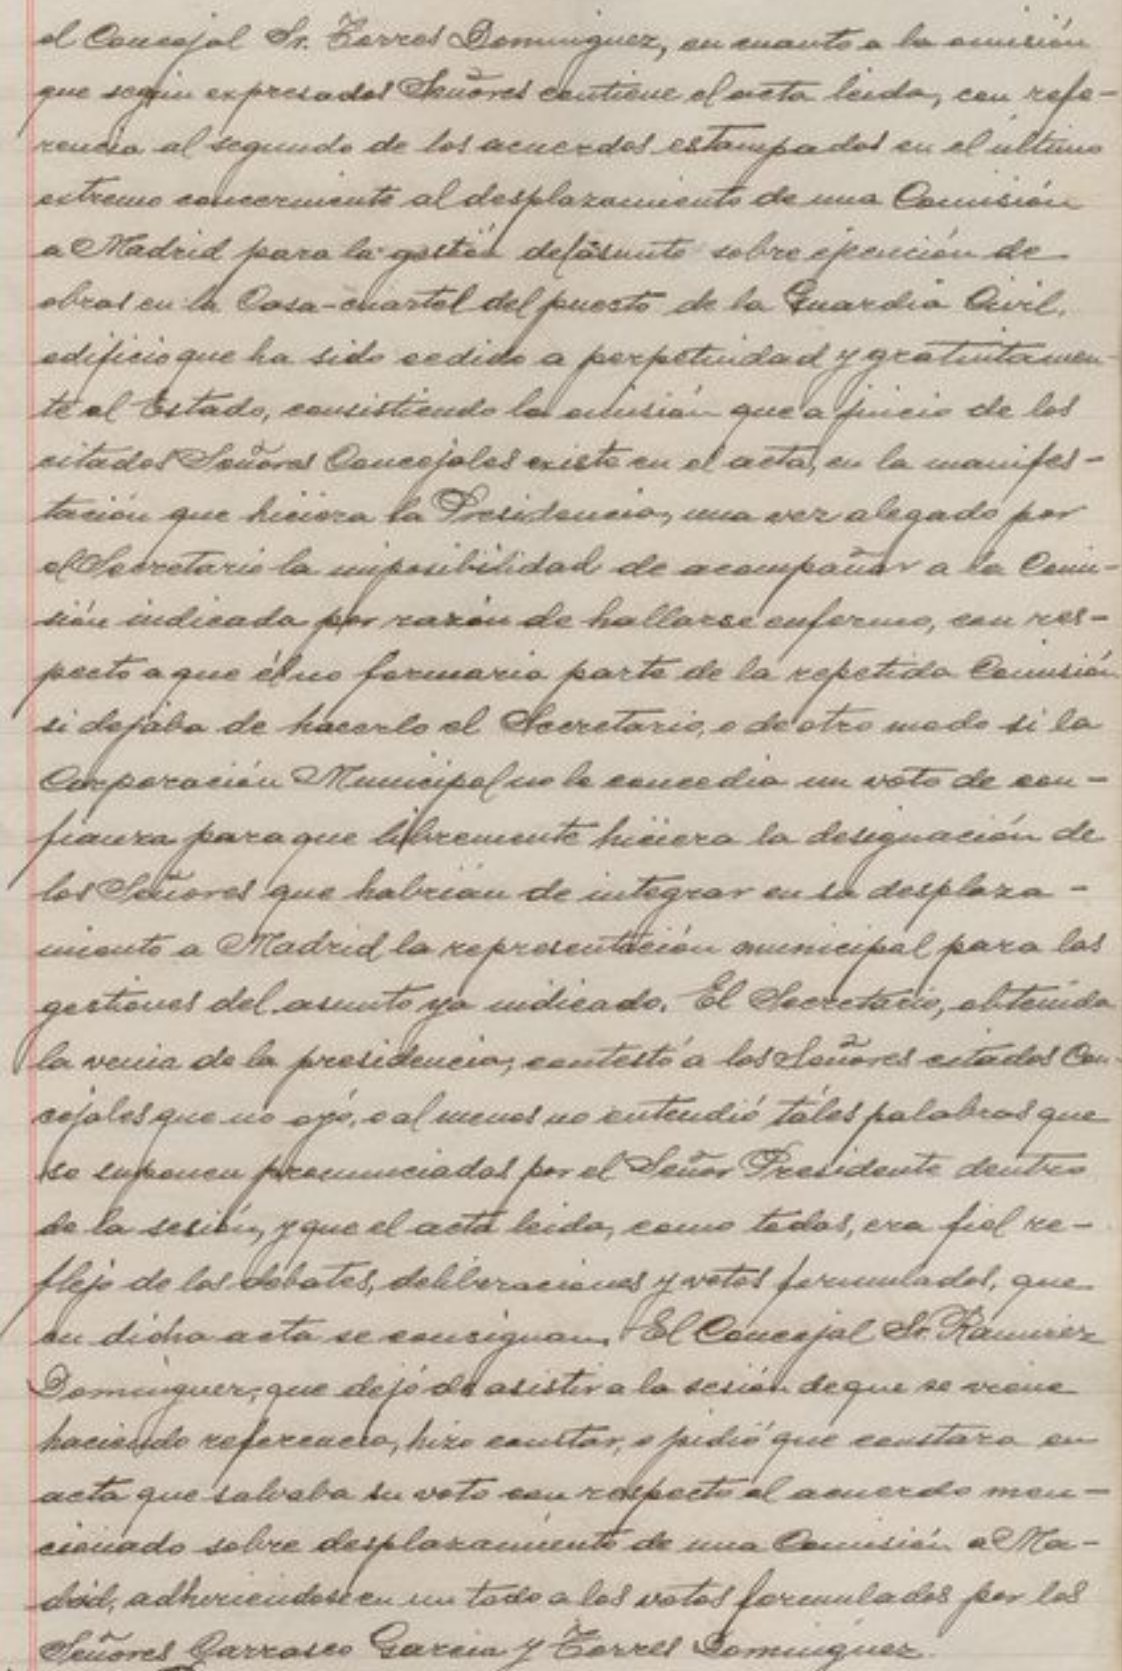 el Concejal Sr. Torres Dominguez, en cuanto a la omisión
que según expresados Señores contiene el acta leida, con refe-
rencia al segundo de los acuerdos estampados en el último
extremo concerniente al desplazamiento de una Comisión
a Madrid para la gestión del asunto sobre ejecución de
obras en la Casa-cuartel del puesto de la Guardia Civil,
edificio que ha sido cedido a perpetuidad y gratuitamen-
te al Estado, consistiendo la omisión que a juicio de los
citados Señores Concejales existe en el acta, en la manifes-
tación que hiciera la Presidencia, una vez alegado por
el Secretario la imposibilidad de acompañar a la Comi-
sión indicada por razón de hallarse enfermo, con res-
pecto a que él no formaria parte de la repetida Comisión
si dejába de hacerlo el Secretario, o de otro modo si la
Corporación Municipal no le concedia un voto de con-
fianza para que libremente hiciera la designación de
los Señores que habrian de integrar en su desplaza-
miento a Madrid la representación municipal para las
gestiones del asunto ya indicado. El Secretario, obtenida
la venia de la presidencia, contestó a los Señores citados Con-
cejales que no oyó, o al menos no entendió táles palabras que
se suponen pronunciadas por el Señor Presidente dentro
de la sesión, y que el acta leida, como todas, era fiel re-
flejo de los debates, deliberaciones y votos formulados, que
en dicha acta se consignan. El Concejal Sr. Ramirez
Dominguez, que dejó de asistir a la sesión de que se viene
haciendo referencia, hizo constar, o pidió que constara en
acta que salvaba su voto con respecto al acuerdo men-
cionado sobre desplazamiento de una Comisión a Ma-
drid, adheriendose en un todo a los votos formulados por los
Señores Carrasco Garcia y Torres Dominguez.